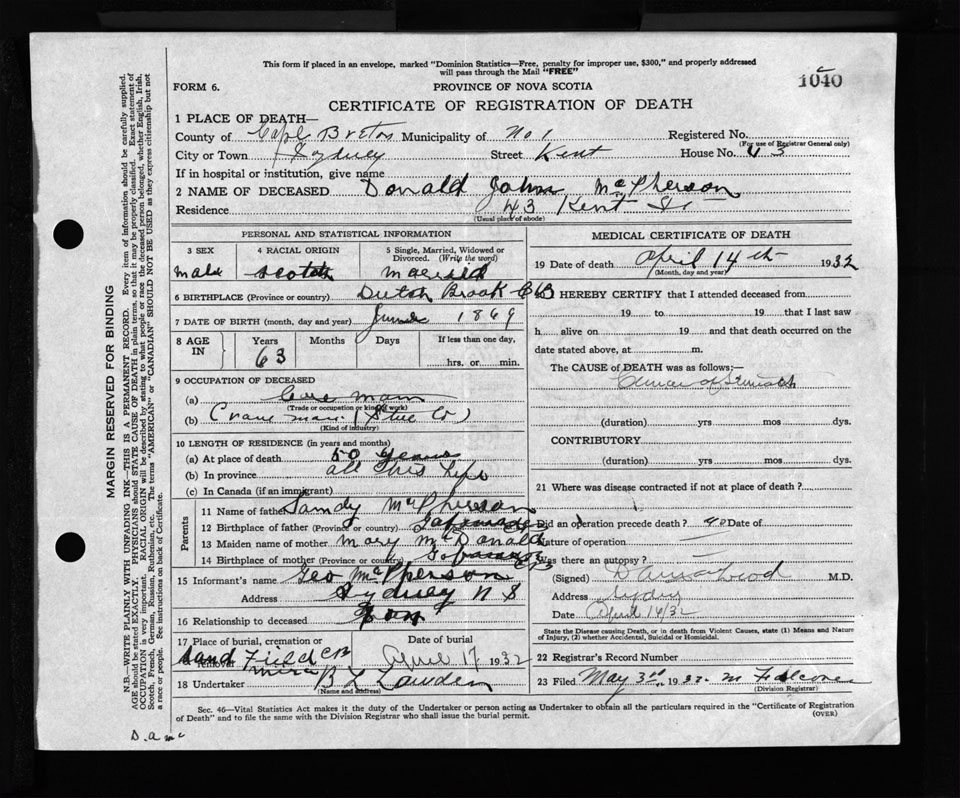 This form if placed in an envelope, marked "Dominion Statistics—Free, penalty for improper use, $300," and properly addressed
will pass through the Mail "FREE"
1040
FORM 6.
PROVINCE OF NOVA SCOTIA
CERTIFICATE OF REGISTRATION OF DEATH
1 PLACE OF DEATH—
County of Cape Breton Municipality of No. 1 Registered No.
(For use of Registrar General only)
City or Town Sydney Street Kent House No. 43
If in hospital or institution, give name
2 NAME OF DECEASED Donald John McPherson
Residence 43 Kent St
(Usual place of abode)
PERSONAL AND STATISTICAL INFORMATION
3 SEX
male
4 RACIAL ORIGIN
scotch
5 Single, Married, Widowed or Divorced. (Write the word)
married
6 BIRTHPLACE (Province or country) Dutch Brook CB
7 DATE OF BIRTH (month, day and year) June 1869
8 AGE IN
Years
63
Months
Days
If less than one day,
hrs. or min.
9 OCCUPATION OF DECEASED
(a)
(Trade or occupation or kind of work)
(b) Crane man (Steel Co)
(Kind of industry)
10 LENGTH OF RESIDENCE (in years and months)
(a) At place of death 50 years
(b) In province all his life
(c) In Canada (if an immigrant)
Parents
11 Name of father Sandy McPherson
12 Birthplace of father (Province or country)
13 Maiden name of mother Mary McDonald
14 Birthplace of mother (Province or country)
15 Informant's name Geo McPherson
Address Sydney N S
16 Relationship to deceased Son
17 Place of burial, cremation or
Sand Field
mira
Date of burial
April 17 1932
18 Undertaker B L
(Name and address)
MEDICAL CERTIFICATE OF DEATH
19 Date of death April 14th 1932
(Month, day and year)
20 I HEREBY CERTIFY that I attended deceased from
19 to 19 that I last saw
h alive on 19 and that death occurred on
date stated above, at m.
The CAUSE of DEATH was as follows:—
Cancer of Stomach
(duration) yrs mos dys.
CONTRIBUTORY
(duration) yrs mos dys.
21 Where was disease contracted if not at place of death?
Did an operation precede death? no Date of
Nature of operation
Was there an autopsy?
(Signed) M.D.
Address Sydney
Date April 16/32
State the Disease causing Death, or in death from Violent Causes, state (1) Means and Nature of Injury, (2) whether Accidental, Suicidal or Homicidal.
22 Registrar's Record Number
23 Filed May 3rd 1932 M Falconer
(Division Registrar)
Sec. 46—Vital Statistics Act makes it the duty of the Undertaker or person acting as Undertaker to obtain all the particulars required in the "Certificate of Registration
of Death" and to file the same with the Division Registrar who shall issue the burial permit.
(OVER)
D.a mc
MARGIN RESERVED FOR BINDING
N.B.—WRITE PLAINLY WITH UNFADING INK—THIS IS A PERMANENT RECORD. Every item of information should be carefully supplied.
AGE should be stated EXACTLY. PHYSICIANS should STATE CAUSE OF DEATH in plain terms, so that it may be properly classified. Exact statement of
OCCUPATION is very important. RACIAL ORIGIN will be described by stating to what people or race the deceased person belonged, whether English, Irish,
Scotch, French, German, Russian, Ruthenian, etc. The terms "AMERICAN" or "CANADIAN" SHOULD NOT BE USED as they express citizenship but not
a race or people. See instructions on back of Certificate.